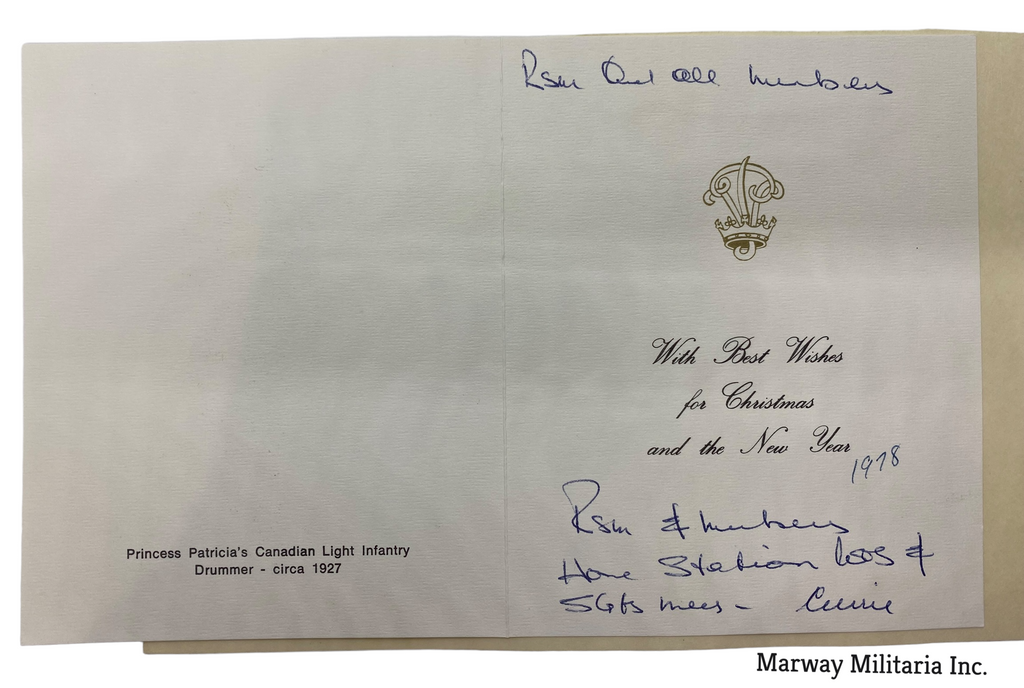 Rsm And all members
With Best Wishes
for Christmas
and the New Year
1978
Rsm & members
Home Station WOS &
SGts mess - Currie
Princess Patricia's Canadian Light Infantry
Drummer - circa 1927
Marway Militaria Inc.